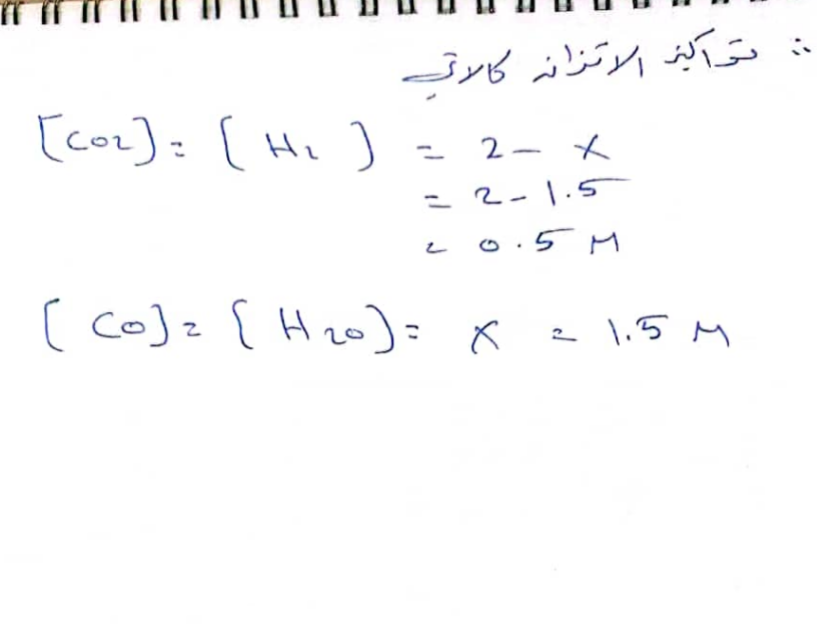 ∴ تراكيز الاتزان كالاتي
[CO2] = [H2] = 2 - x
= 2 - 1.5
= 0.5 M
[CO] = [H2O] = x = 1.5 M